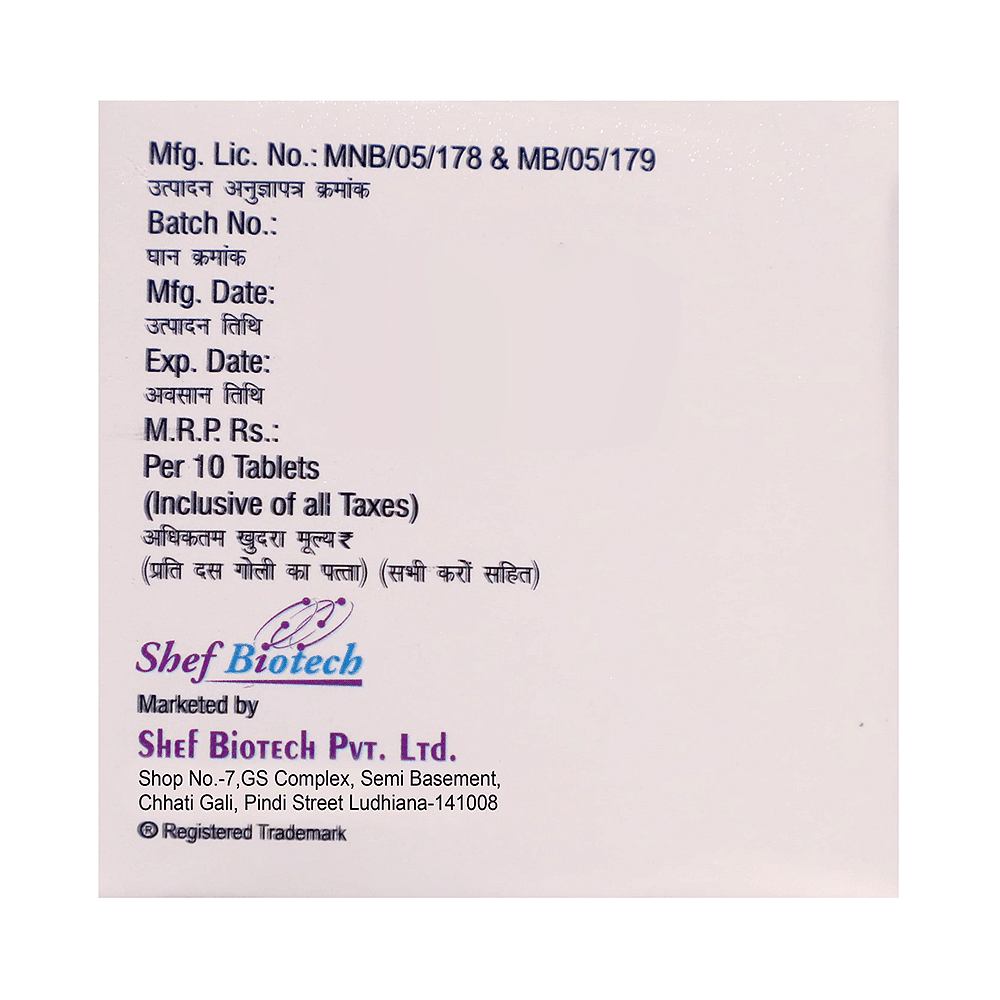 Mfg. Lic. No.: MNB/05/178 & MB/05/179
उत्पादन अनुज्ञापत्र क्रमांक
Batch No.:
घान क्रमांक
Mfg. Date:
उत्पादन तिथि
Exp. Date:
अवसान तिथि
M.R.P. Rs.:
Per 10 Tablets
(Inclusive of all Taxes)
अधिकतम खुदरा मूल्य ₹
(प्रति दस गोली का पत्ता) (सभी करों सहित)
Shef Biotech
Marketed by
Shef Biotech Pvt. Ltd.
Shop No.-7,GS Complex, Semi Basement,
Chhati Gali, Pindi Street Ludhiana-141008
® Registered Trademark